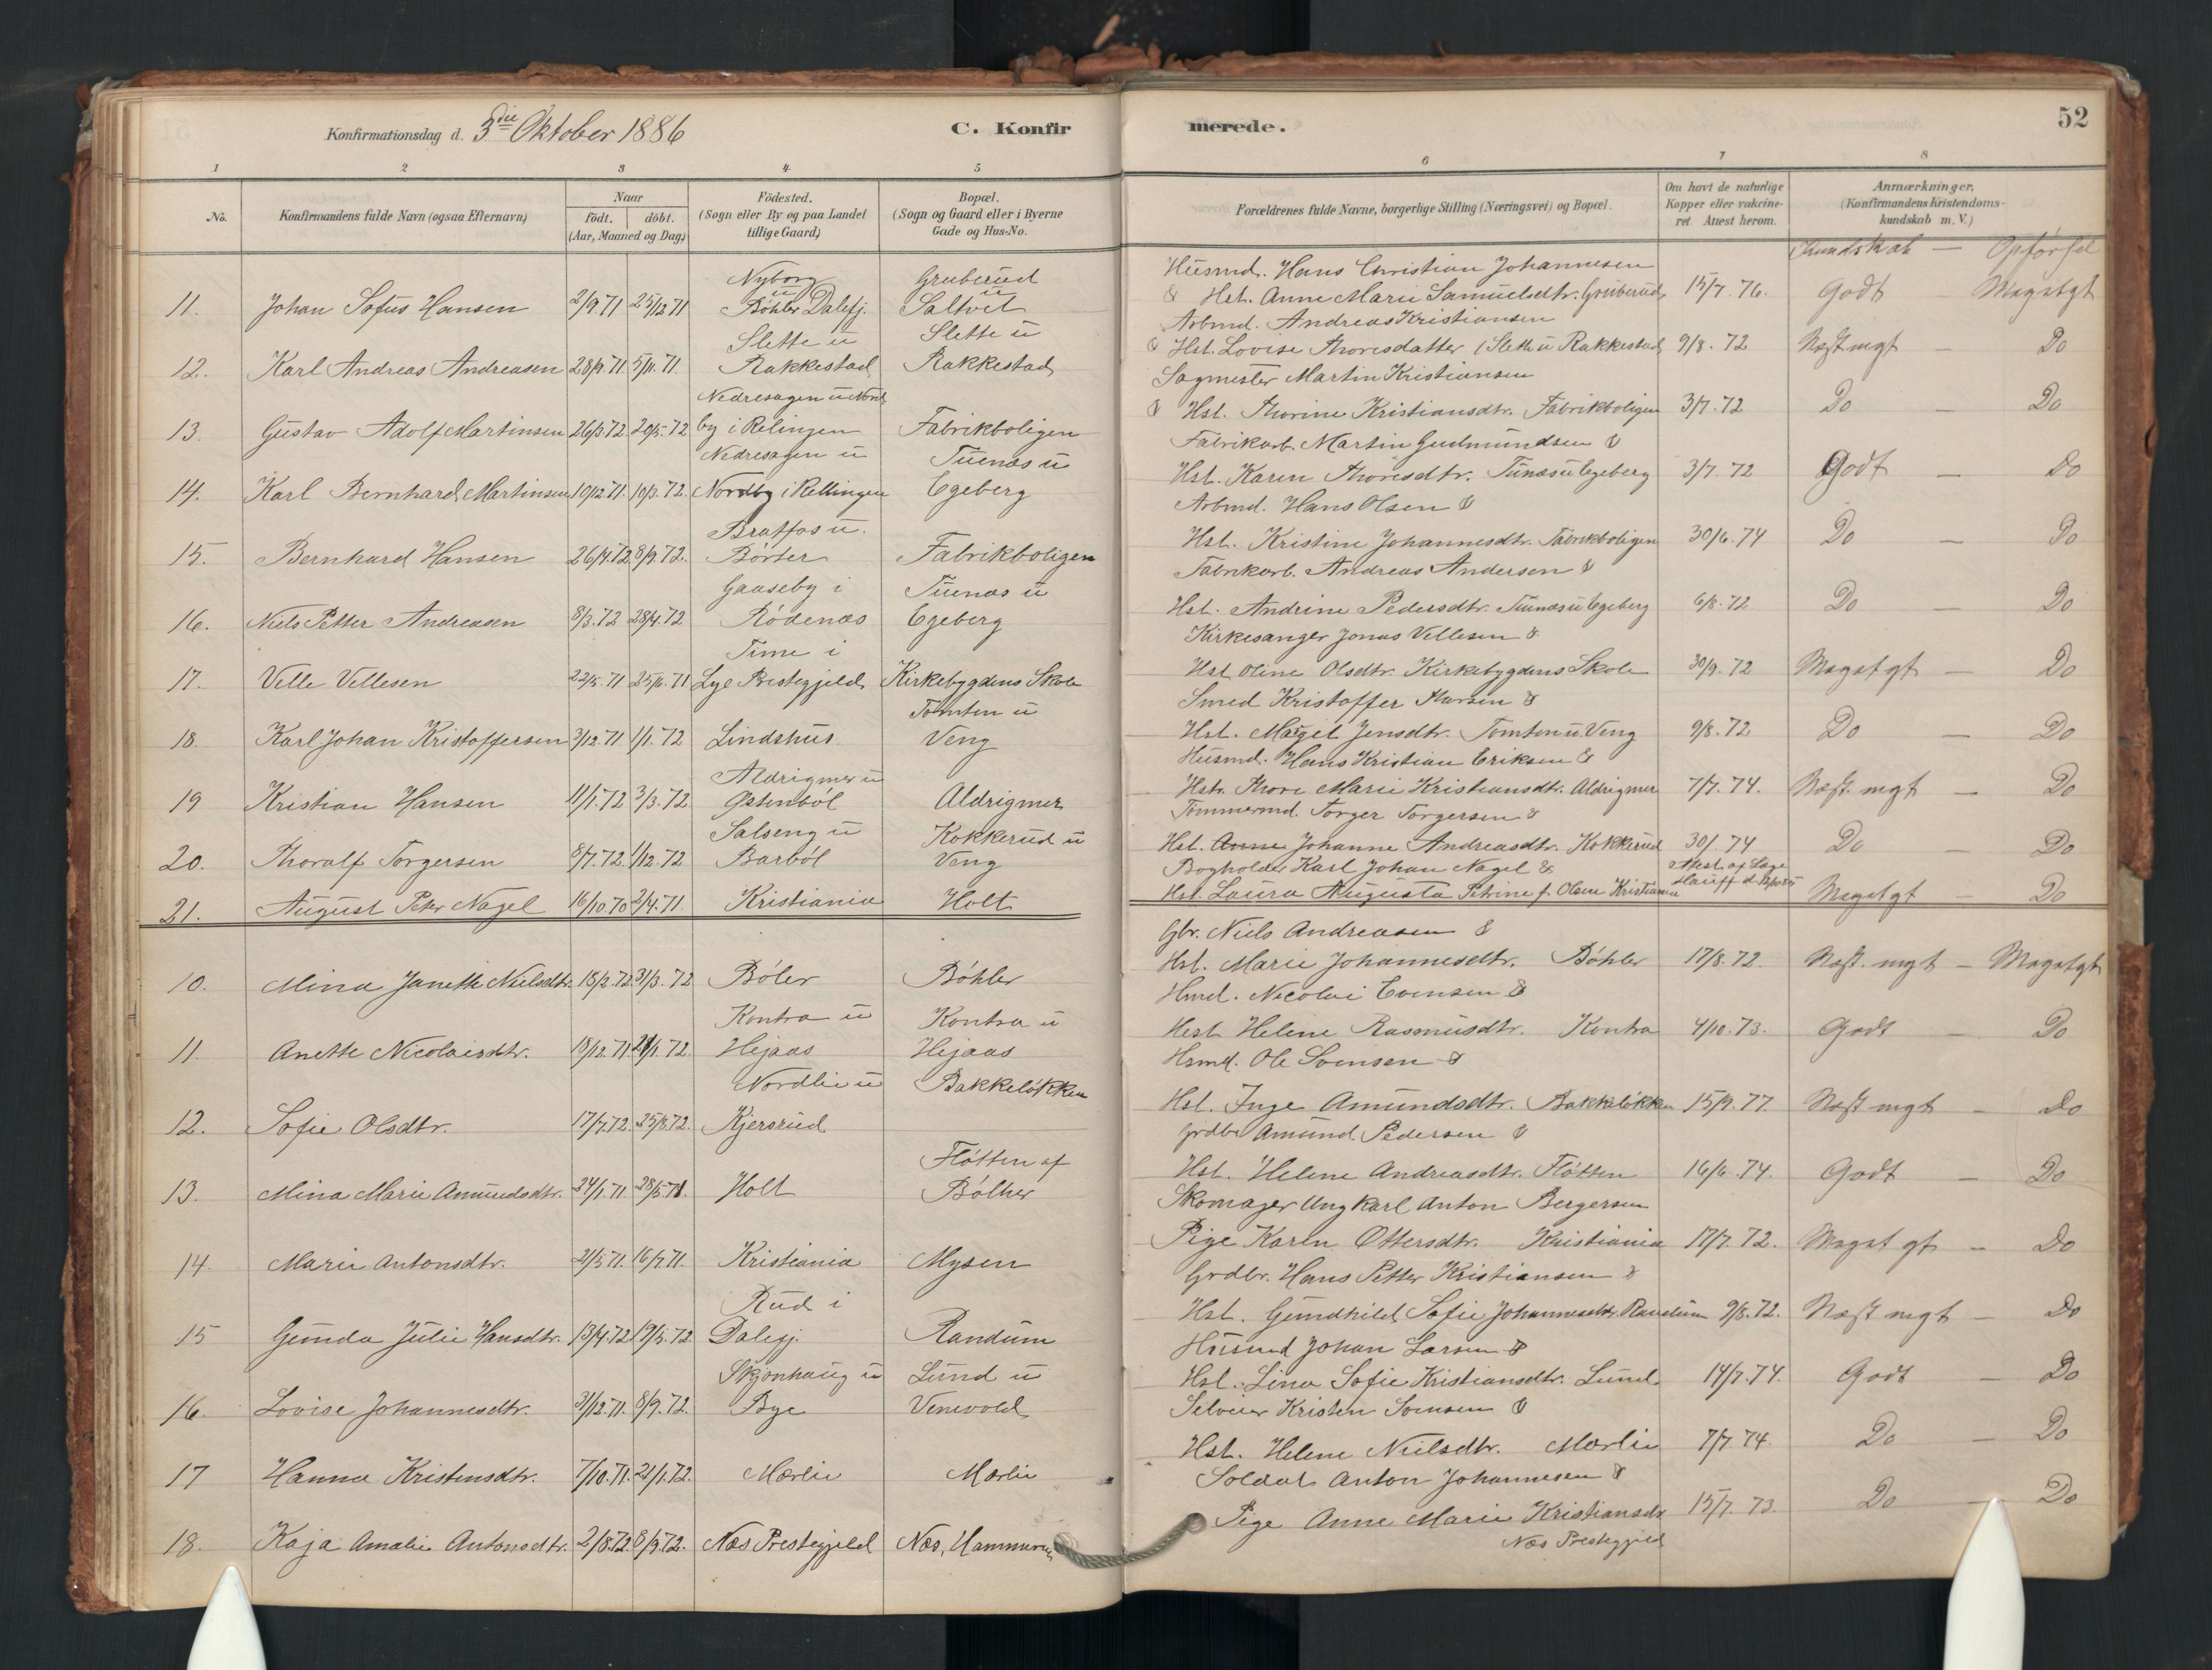 Konfirmationsdag d. 3die Oktober 1886
C. Konfirmerede.
52
1 2 3 4 5 6 7 8
No.
Konfirmandens fulde Navn (ogsaa Efternavn)
Naar
födt. döbt.
(Aar, Maaned og Dag)
Födested.
(Sogn eller By og paa Landet
tillige Gaard)
Bopæl.
(Sogn og Gaard eller i Byerne
Gade og Hus-No.
Forældrenes fulde Navne, borgerlige Stilling (Næringsvei) og Bopæl.
Om havt de naturlige
Kopper eller vakcine-
ret. Attest herom.
Anmærkninger.
(Konfirmandens Kristendoms-
kundskab m. V.)
Kundskab — Opförsel
Nyborg Gruberud Husmd. Hans Christian Johannesen
11. Johan Sofus Hansen 2/9.71 25/12 71 u Böhler Dalefj. u Saltvet & Hst. Anne Marie Samuelsdtr. Gruberud 15/7.76. Godt — Megetgt
Slette u Slette u Arbmd. Andreas Kristiansen
12. Karl Andreas Andreasen 28/9.71 5/11.71. Rakkestad Rakkestad & Hst. Lovise Thoresdatter (Slette u Rakkestad 9/8.72 Næst mgt — Do
Nedresagen u Nord Sagmester Martin Kristiansen
13. Gustav Adolf Martinsen 26/3.72 20/5.72 by i Relingen Fabrikboligen & Hst. Thorine Kristiansdtr. Fabrikboligen 3/7.72 Do — Do
Nedresagen u Tuenæs u Fabrikarb. Martin Gudmundsen &
14. Karl Bernhard Martinsen 10/12 71. 10/3.72. Nordby i Rellingen Egeberg Hst. Karen Thoresdtr. Tunæs u Egeberg 3/7.72 Godt — Do
Bratfos u. Arbmd. Hans Olsen &
15. Bernhard Hansen 26/4.72 8/9.72. Börter Fabrikboligen Hst. Kristine Johannesdtr. Fabrikboligen 30/6.74 Do — Do
Gaaseby i Tuenæs u Fabrikarb. Andreas Andersen &
16. Niels Petter Andreasen 8/3.72 28/4.72 Rödenæs Egeberg Hst. Andrine Pedersdtr. Tuenæs u Egeberg 6/8.72 Do — Do
Time i Kirkesanger Jonas Vellesen &
17. Velle Vellesen 22/5.71 25/6.71 Lye Prestegjeld Kirkebygdens Skole Hst Oline Olsdtr. Kirkebygdens Skole 30/9.72 Megetgt — Do
Tomten u Smed Kristoffer Hansen &
18. Karl Johan Kristoffersen 3/12.71 1/1.72 Lindshus. Veng Hst. Margit Jensdtr. Tomten u Veng 9/8.72 Do — Do
Aldrigmer u Husmd. Hans Kristian Eriksen &
19 Kristian Hansen 11/1.72 3/3.72. Østenböl Aldrigmer Hstr. Thore Marie Kristiansdtr. Aldrigmer 7/7.74. Næst mgt — Do
Salseng u Kokkerud u Tömmermd. Torger Torgersen &
20. Thoralf Torgersen 8/7.72. 1/12.72 Barböl Veng Hst. Anne Johanne Andreasdtr. Kokkerud 30/ 74 Do — Do
Bogholder Karl Johan Nagel & Attest af Læge
21. August Peter Nagel 16/10 70 2/4.71. Kristiania Holt Hst. Laura Augusta Petrine f. Olsen Kristiania Hauff d. Megetgt — Do
Gbr. Niels Andreasen &
10. Mina Janette Nielsdtr. 18/2.72 31/3.72 Böler Böhler Hst. Marie Johannesdtr. Böhler 17/8.72. Næst. mgt — Megetgt
Kontra u Kontra u Hmd. Nicolai Evensen &
11. Anette Nicolaisdtr. 18/12.71 21/1.72. Hejaas Hejaas Hest Helene Rasmusdtr. Kontra 4/10.73. Godt — Do
Nordlie u Bakkelökken Hsmd. Ole Svensen &
12. Sofie Olsdtr. 17/7.72. 25/8.72. Kjersrud Hst. Inge Amundsdtr. Bakkelökken 15/9.77. Næst mgt — Do
Flötten af Grdbr. Amund Pedersen &
13. Mina Marie Amundsdtr. 24/1.71. 28/5.71. Holt Bölher Hst. Helene Andreasdtr. Flötten 16/6.74. Godt — Do
Skomager Ungkarl Anton Bergersen
14. Marie Antonsdtr. 21/5 71. 16/7.71. Kristiania Mysen Pige Karen Ottersdtr. Kristiania 17/7.72. Meget gt — Do
Rud i Grdbr. Hans Petter Kristiansen &
15 Gunda Julie Hansdtr. 13/4.72 19/5.72. Dalegj. Randum Hst. Gundhild Sofie Johannesdtr. Randum 9/8.72. Næst mgt — Do
Skjönhaug u Lund u Husmd Johan Larsen &
16. Lovise Johannesdtr. 31/12.71. 8/9.72. Bye Venevold Hst. Lina Sofie Kristiansdtr. Lund. 14/7.74. Godt — Do
Selveier Kristen Svensen &
17 Hanna Kristensdtr. 7/10.71. 21/1.72. Mærlie Mærlie Hst. Helene Nielsdtr. Mærlie 7/7.74. Do — Do
Soldat Anton Johannesen &
18. Kaja Amalie Antonsdtr. 2/8.72. 8/9.72. Næs Prestegjeld Næs, Hammeren Pige Anne Marie Kristiansdtr 15/7.73. Do — Do
Næs Prestegjeld